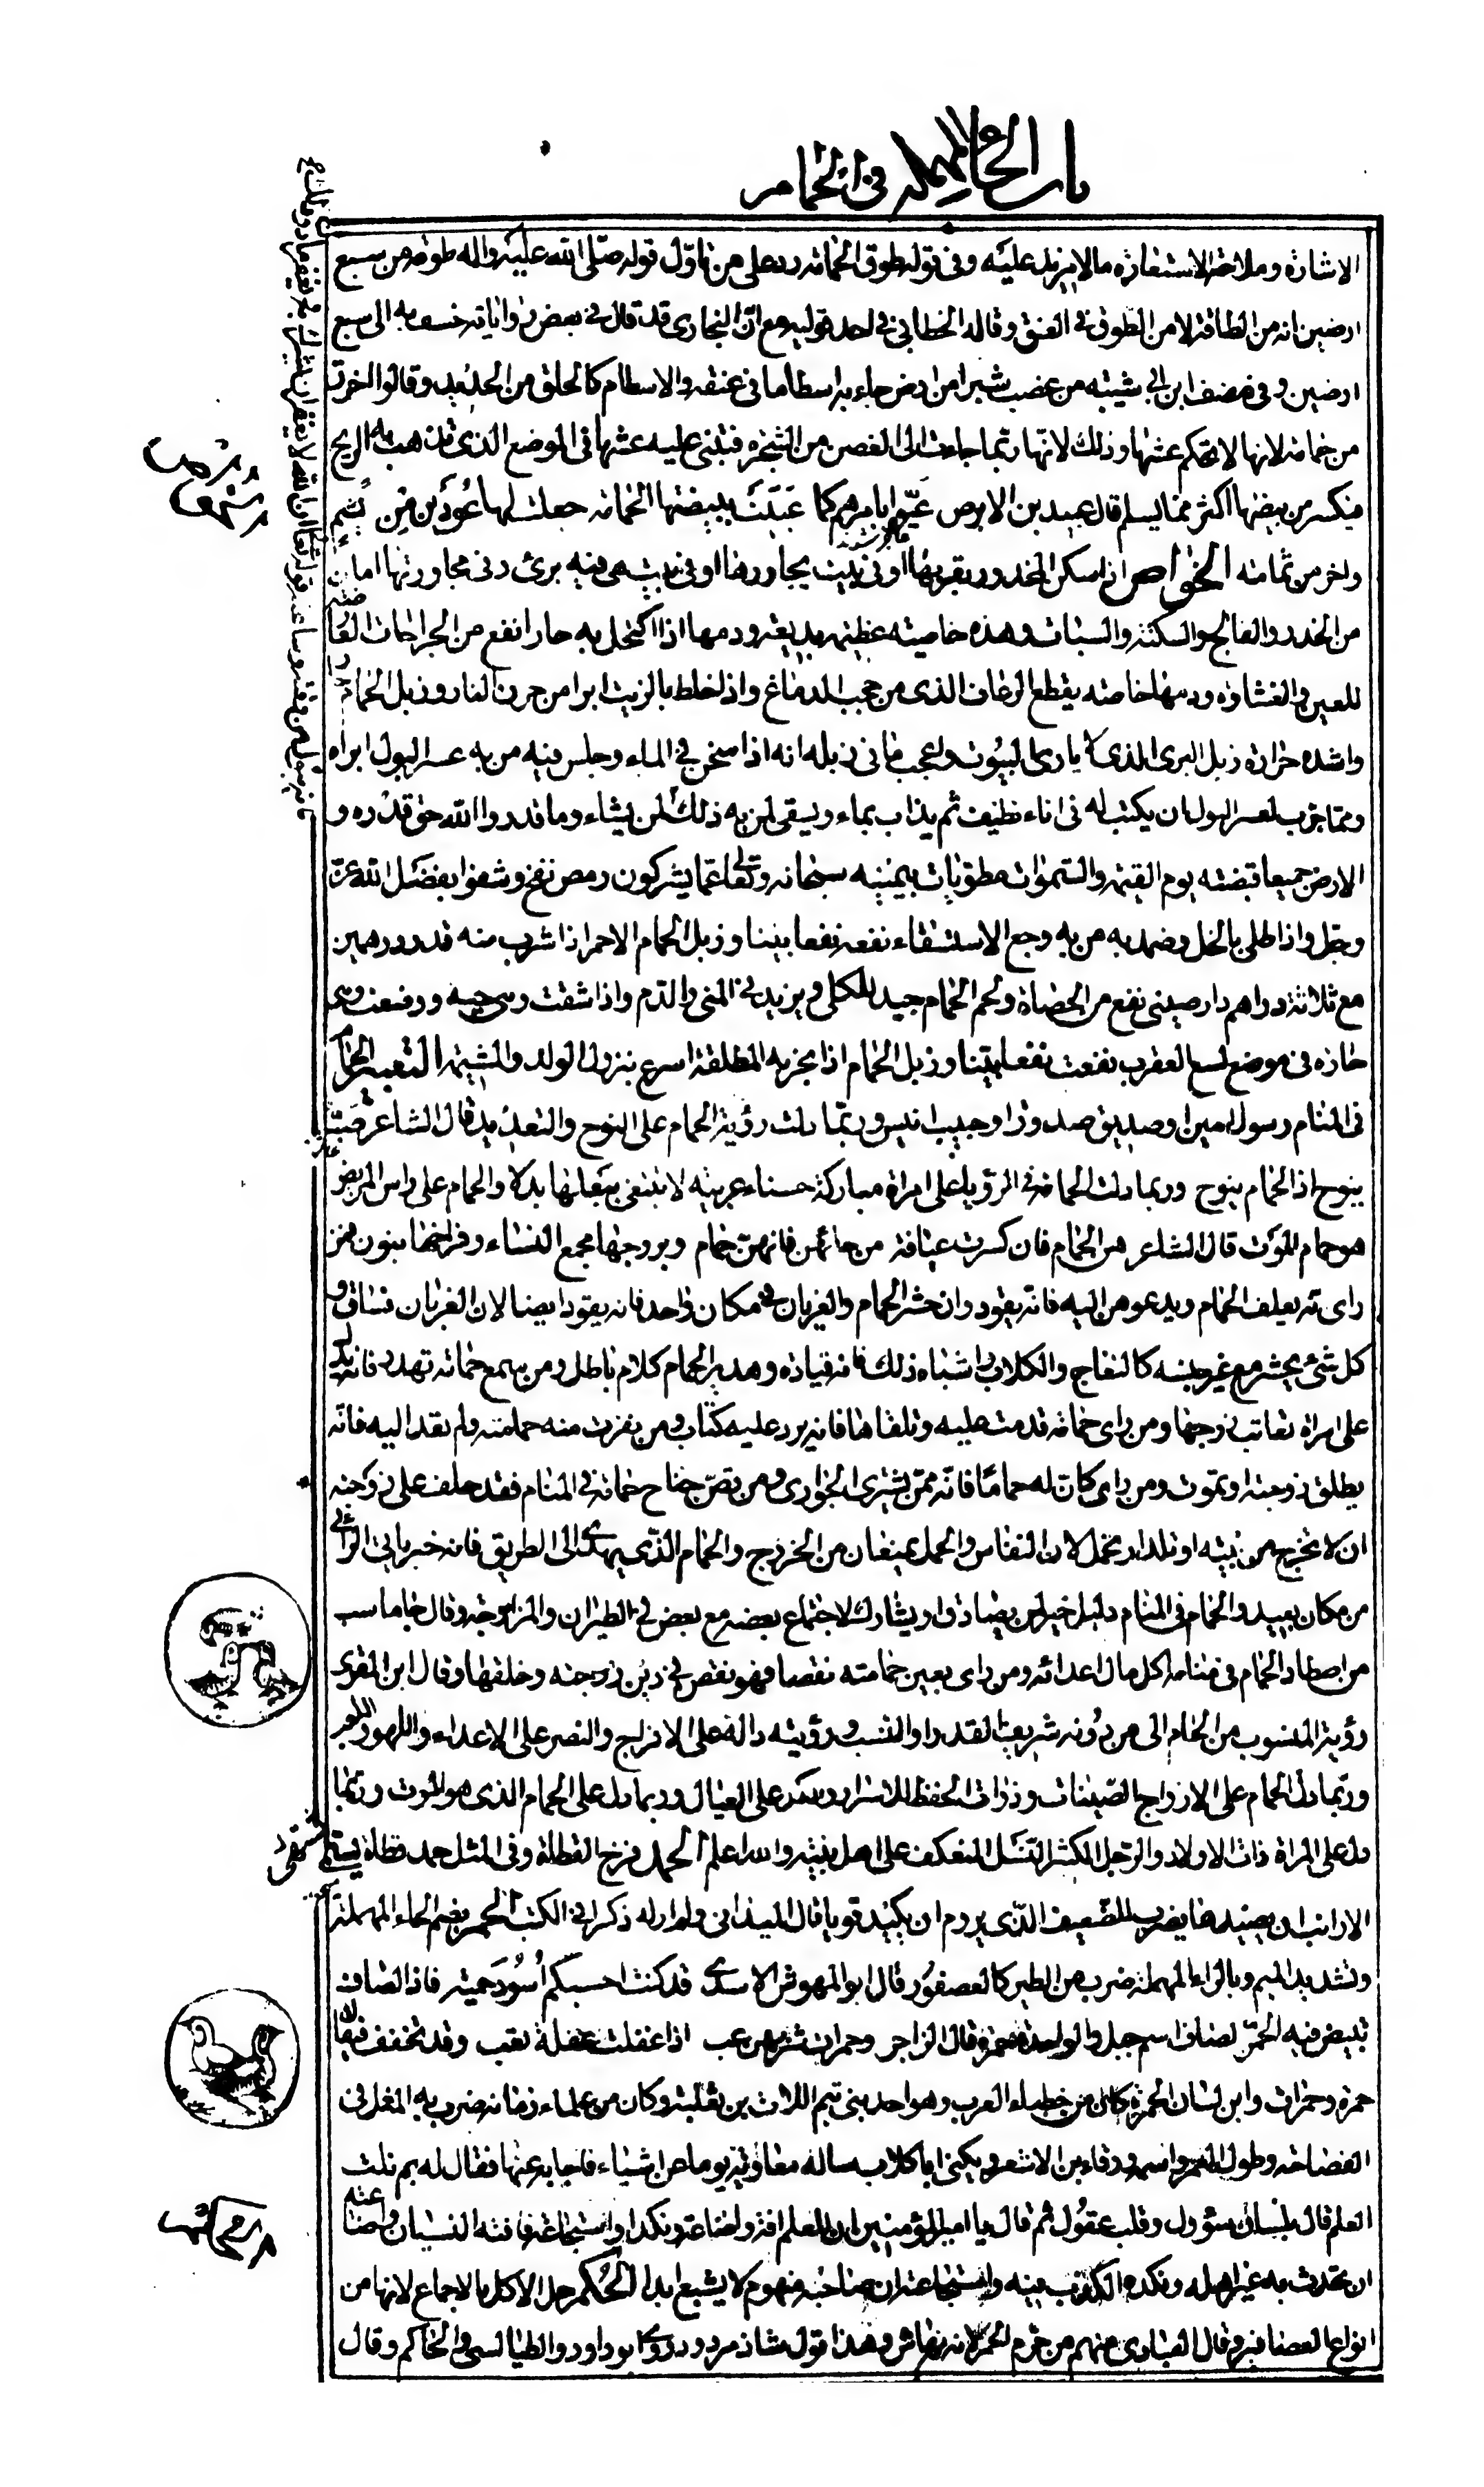 باب الحاء المهملة في الحمام
الاشارة وملاحة الاستعارة ما لا مزيد عليه وفى قوله طوق الحمامة رد على من تاوّل قوله صلّى الله عليه واله طوقه من سبع
ارضين انه من الطاقة لا من الطوق فى العنق وقاله الخطابى فى احد قوليه مع انّ البخارى قد قال فى بعض رواياته خسف به الى سبع
ارضين وفى مصنف ابن ابى شيبه من غصب شبرا من ارض جاء به اسطاما فى عنقه والاسطام كالحلق من الحديد وقالوا اخرق
من حمامة لانها لا تحكم عشها وذلك لانّها ربّما جاءت الى الغصن من الشجرة فتبنى عليه عشها فى الموضع الذى تذهب به الريح
فيكسر من بيضها اكثر مما يسلم قال عبيد بن الابرص عَيّوا بامرهم كما عَيَّتْ ببيضتها الحمامه جعلت لها عُودَين مِن نشم
واخر من ثمامه الخواص اذا سكن المخدور بقربها او فى بيت يجاورها او فى بيت هى فيه برئ وفى مجاورتها امان
من الخدر والفالج والسكتة والسبات وهذه خاصيته عظيمه بديعة ودمها اذا اكتحل به حارا نفع من الجراحات العارضة
للعين والغشاوة ودمها خاصه يقطع الرعاف الذى من حجب الدماغ واذا خلط بالزيت ابرا من حرق النار وزبل الحمام حار
واشده حرارة زبل البرى الذى لا ياوى البيوت واعجب ما فى زبله انه اذا سخن فى الماء وجلس فيه من به عسر البول ابراه
ومما جرب لعسر البول ان يكتب له فى اناء نظيف ثم يذاب بماء ويسقى لمن به ذلك لمن يشاء وما قدروا الله حق قدره و
الارض جميعا قبضته يوم القيمة والسّموات مطويات بيمينه سبحانه وتعالى عمّا يشركون رمص نفخ وشفوا بفضل الله عزّ
وجل واذا طلى بالخل وضمد به من به وجع الاستسقاء نفعه نفعا بينا وزبل الحمام الاحمر اذا شرب منه قدر درهمين
مع ثلاثة دراهم دارصينى نفع من الحصاة ولحم الحمام جيد للكلى ويزيد فى المنى والدّم واذا شقت وهى حيه ووضعت وهى
حارة فى موضع لسع العقرب نفعت نفعا بيّنا وزبل الحمام اذا بخر به المطلقة اسرع بنزول الولد والمشيمة التعبير الحمام
فى المنام رسول امين او صديق صدوق او حبيب انيس وربّما دلت رؤية الحمام على النوح والتعديد قال الشاعر صَبّ
ينوح اذا الحمام ينوح وربما دلت الحمامة فى الرؤيا على امراة مباركة حسناء عربيه لا تبتغى ببعلها بدلا والحمام على راس المريض
هو حمام الموت قال الشاعر هن الحمام فان كسرت عيافة من حائهن فانهنّ حمام وبروجها مجمع النساء وفراخها بنون فمن
راى انه يعلف الحمام ويدعوهن اليه فانه يقود وان حشر الحمام والغربان فى مكان واحد فانه يقود ايضا لان الغربان فساق و
كل شئ يحشر مع غير جنسه كالنعاج والكلاب واشباه ذلك فانه قياده وهدير الحمام كلام باطل ومن سمع حمامة تهدر فانه يدل
على امراة تعاتب زوجها ومن راى حمامة قدمت عليه وتلقاها فانه يرد عليه كتاب ومن نفرت منه حمامته ولم تعد اليه فانّه
يطلق زوجته او تموت ومن راى كان له حمامًا فانّه ممّن يشترى الجوارى ومن قصّ جناح حمامة فى المنام فقد حلف على زوجته
ان لا تخرج من بيته او تلد او تحمل لان النفاس والحمل يمنعان من الخروج والحمام الذى يهدى الى الطريق فانه خير ياتى الرائى
من مكان بعيد والحمام فى المنام دليل خير لمن يصادق او يشارك لاجتماع بعضه مع بعض فى الطيران والمزاوجة وقال جاماسب
من اصطاد الحمام فى منامه اكل مال اعدائه ومن راى بعين حمامته نقصا فهو نقص فى دين زوجته وخلقها وقال ابن المقرى
رؤية المنسوب من الحمام الى من دونه شريف القدر او النسب ورؤيته دالة على الافراح والنصر على الاعداء واللهو واللعب
وربّما دل الحمام على الازواج الصّينات وذوات الحفظ للاسرار وللكد على العيال وربما دل على الحمام الذى هو الموت وربّما
دل على المراة ذات الاولاد والرّجل الكثير النّسل المنعكف على اهل بيته والله اعلم الحمد فرخ القطاة وفى المثل حمد قطاة يستمى
الارانب ان يصيدها يضرب للضّعيف الذى يروم ان يكيد قويا قاله الميدانى ولم ار له ذكرا فى الكتب الحمر بضم الحاء المهملة
وتشديد الميم وبالراء المهملة ضرب من الطير كالعصفور قال ابو المهوش الاسدى قد كنت احسبكم اُسُودَ خفية فاذا لصاف
تبيض فيه الحمّر لصاف اسم جبل والواحدة حمرة قال الراجز وحمرات شربهن غب اذا غفلت غفلة تعب وقد تخفف فيقال
حمرة وحمرات وابن لسان الحمّرة كان من خطباء العرب وهو احد بنى تيم اللات بن ثعلبة وكان من علماء زمانه ضرب به المثل فى
الفصاحه وطول العمر واسمه ورقاء بن الاشعر ويكنى ابا كلاب ساله معاوية يوما عن اشياء فاجابه عنها فقال له بم نلت
العلم قال بلسان سؤول وقلب عقول ثم قال يا امير المؤمنين ان للعلم افة واضاعة ونكدا واستجاعة فافته النسيان واضاعته
ان تحدث به غير اهله ونكده الكذب فيه واستجاعته ان صاحبه منهوم لا يشبع ابدا الحكم حل الاكل بالاجماع لانها من
انواع العصافير وقال العبادى منهم من حرم الحمر لانه نهاش وهذا قول شاذ مردود روى ابو داود والطيالسى والحاكم وقال